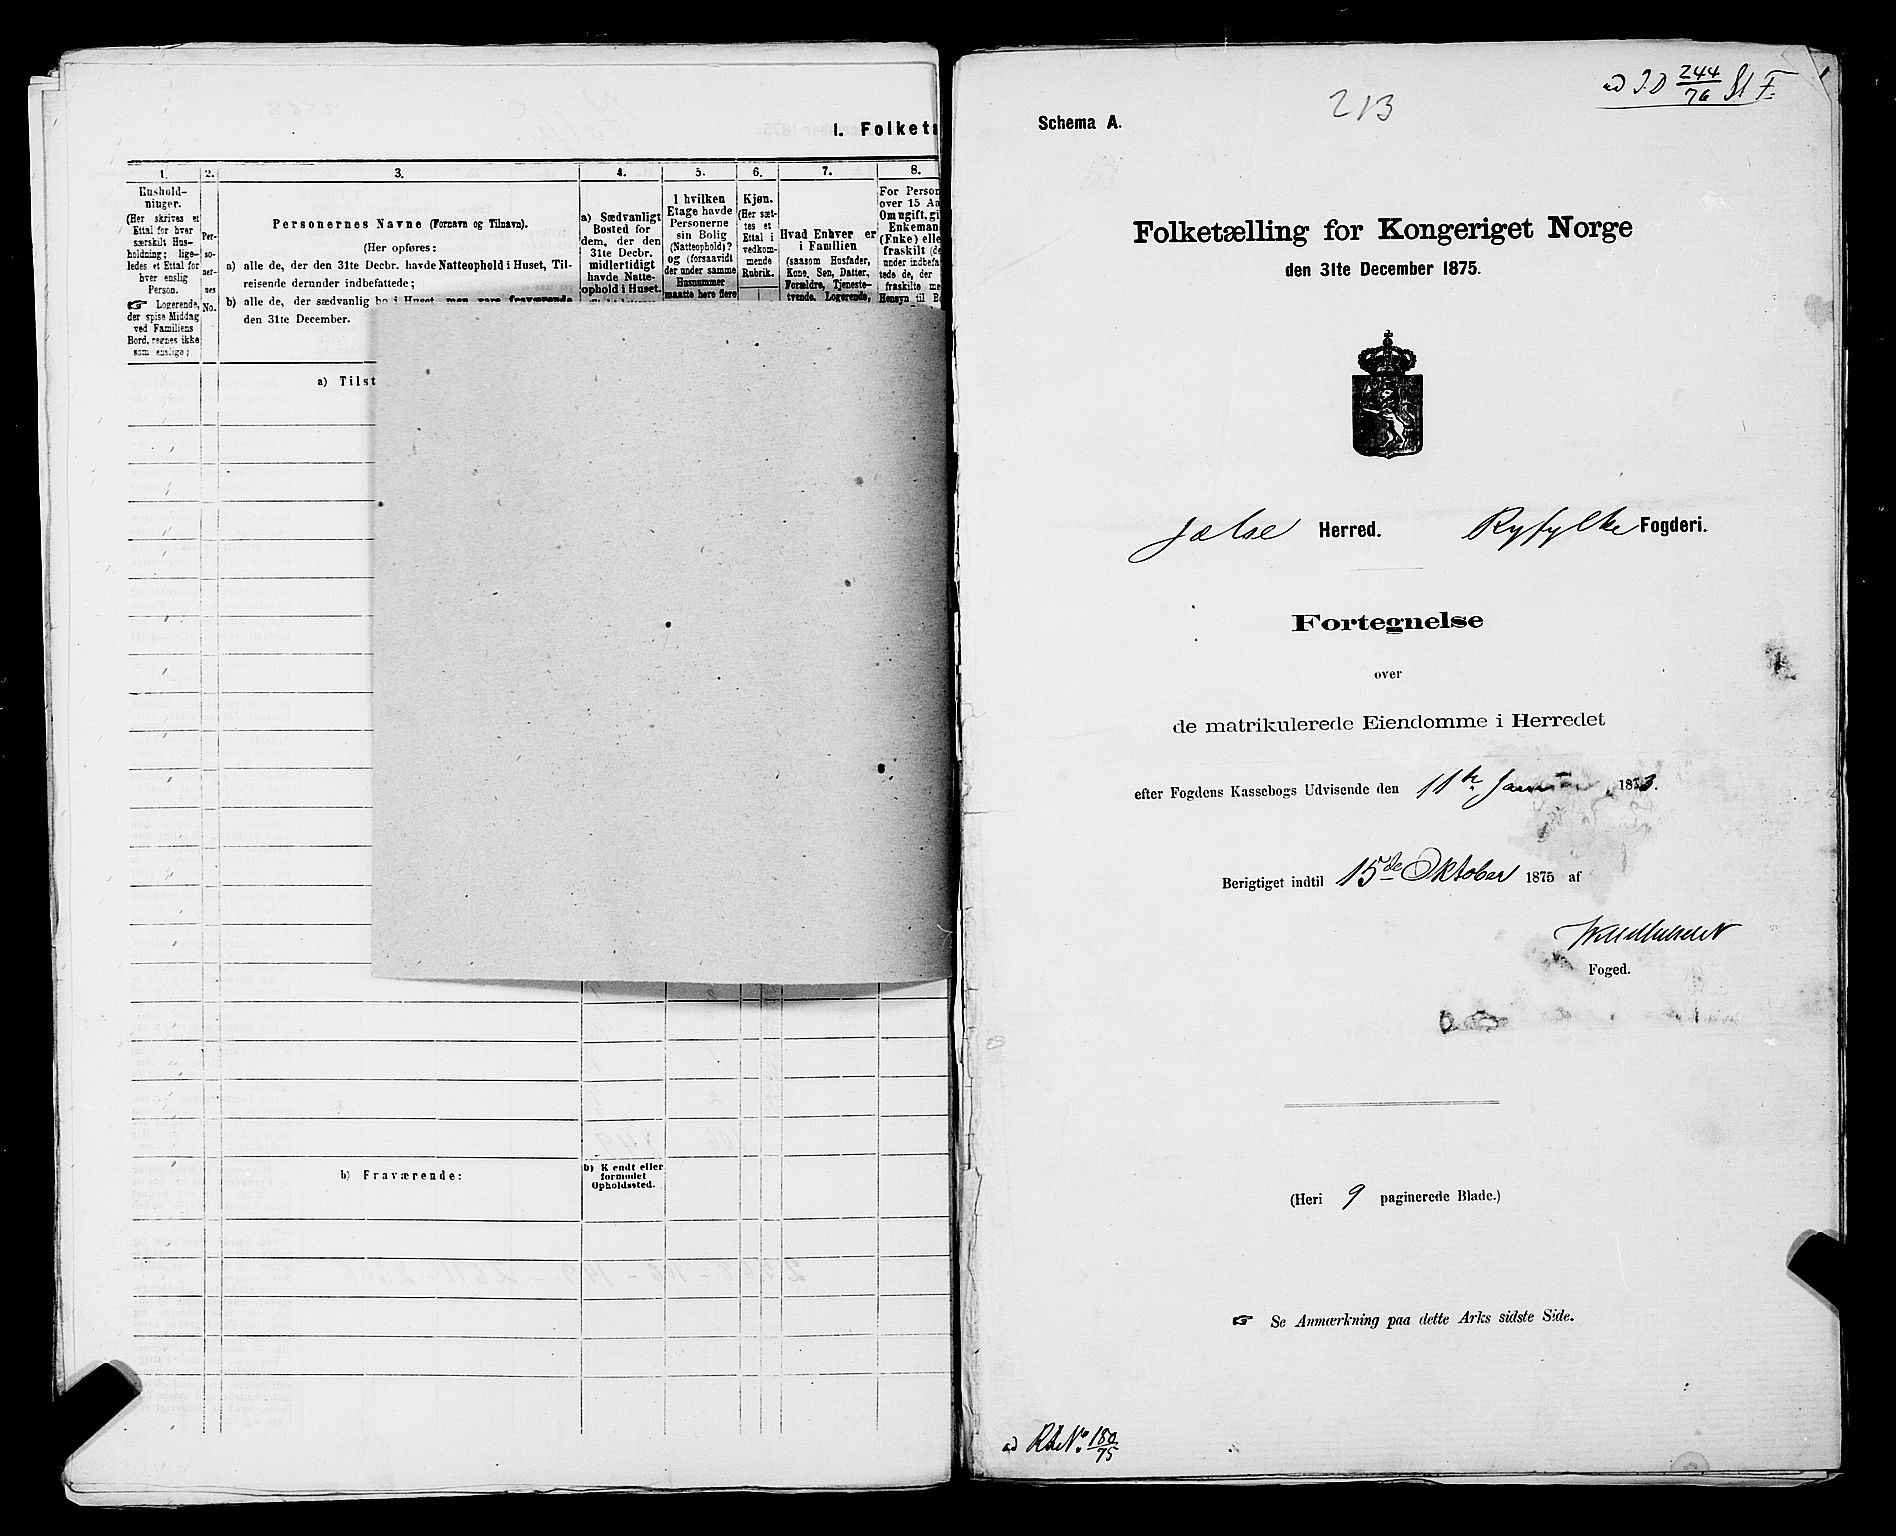 I. Folketæ
1.
2.
3.
4.
5.
6.
7.
8.
Hushold-
ninger.
(Her skrives et
Ettal for hver
særskilt Hus-
holdning; lige-
ledes et Ettal for
hver enslig
Person.
☞ Logerende,
der spise Middag
ved Familiens
Bord, regnes ikke
som enslige;
Per-
so-
ner-
nes
No.
Personernes Navne (Fornavn og Tilnavn).
(Her opføres:
a) alle de, der den 31te Decbr. havde Natteophold i Huset, Til-
reisende derunder indbefattede;
b) alle de, der sædvanlig bo i Huset, men vare fraværende
den 31te December.
a) Tilst
a) Sædvanligt
Bosted for
dem, der den
31te Decbr.
midlertidigt
havde Natte-
ophold i Huset.
I hvilken
Etage havde
Personerne
sin Bolig
(Natteophold)?
og (forsaavidt
der under samme
Husnummer
maatte høre flere
Kjøn.
(Her sæt-
tes et
Ettal i
vedkom-
mende
Rubrik.
Hvad Enhver er
i Familien
(saasom Husfader,
Kone, Søn, Datter,
Forældre, Tjeneste-
tyende, Logerende,
For Person
over 15 Aa
Om ugift, gi
Enkeman
(Enke) elle
fraskilt (de
under indbefa
tede de, der
fraskilte me
Hensyn til B
b) Fraværende:
b) Kjendt eller
formodet
Opholdssted.
ad J.D 244/76 St F.
213
Schema A.
Folketælling for Kongeriget Norge
den 31te December 1875.
Jælse Herred. Ryfylke Fogderi.
Fortegnelse
over
de matrikulerede Eiendomme i Herredet
efter Fogdens Kassebogs Udvisende den 11te 1873.
Berigtiget indtil 15de Oktober 1875 af
Foged.
(Heri 9 paginerede Blade.)
☞ Se Anmærkning paa dette Arks sidste Side.
ad No. 180/75